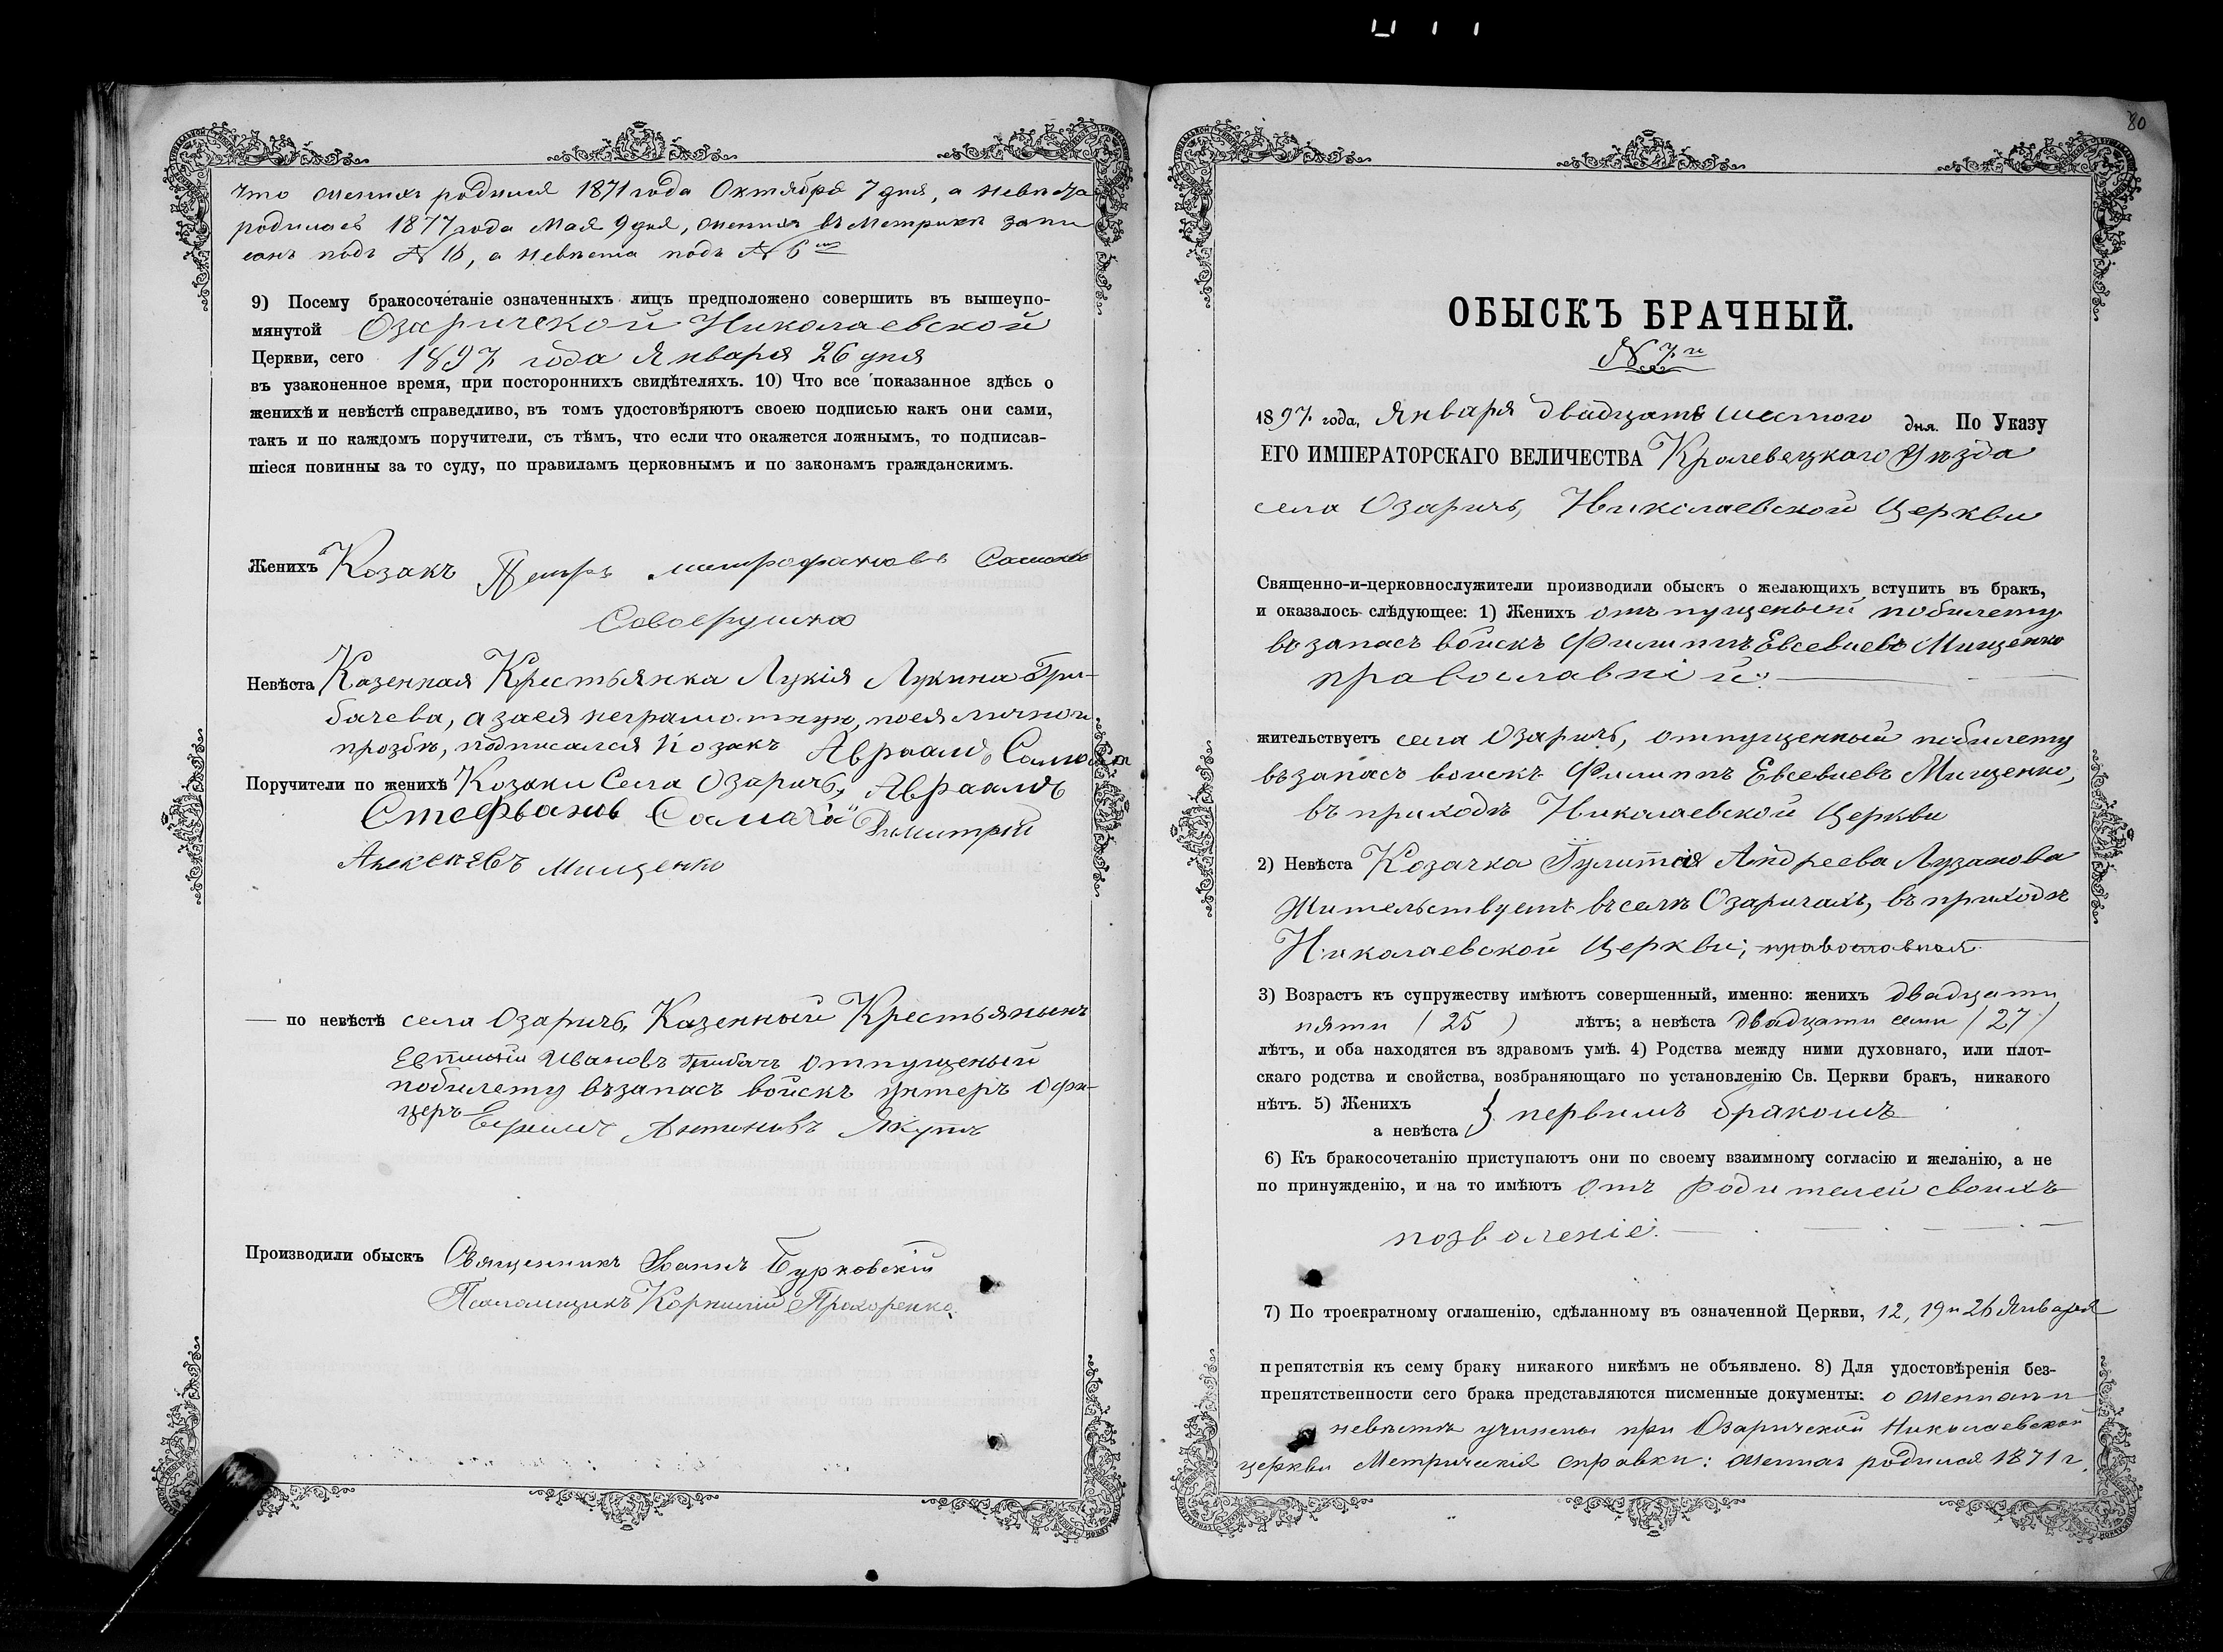 что женихъ родился 1871 года Октября 7 дня, а невѣста
родилась 1877 года Мая 9 дня, женихъ въ Метрикѣ запи
санъ подъ № 16, а невѣста подъ № 6
9) Посему бракосочетаніе означенныхъ лицъ предположено совершить въ вышеупо-
мянутой Озаричской Николаевской
Церкви, сего 1897 года Января 26 дня
въ узаконенное время, при постороннихъ свидѣтеляхъ. 10) Что все показанное здѣсь о
женихѣ и невѣстѣ справедливо, въ томъ удостовѣряютъ своею подписью какъ они сами,
такъ и по каждомъ поручители, съ тѣмъ, что если что окажется ложнымъ, то подписав-
шіеся повинны за то суду, по правиламъ церковнымъ и по законамъ гражданскимъ.
Женихъ Козакъ Петръ митрофановъ
Невѣста Казенная Крестьянка Лукія Лукина Гри-
бачева, а за ея неграмотную, по ея личной
прозбѣ, подписался Козакъ Авраамъ
Поручители по женихѣ Козаки Села Озаричъ, Авраамъ
Стефановъ Димитрій
Алексѣевъ Мищенко
— по невѣстѣ села Озаричъ, Казенный Крестьянынъ
Ивановъ Грибачъ отпущеный
побилету възапасъ войскъ унтеръ Офи-
церъ Антоновъ Якутъ
Производили обыскъ Священникъ Іоаннъ Бурковскій
Псаломщикъ Корнилій Прохоренко.
80
ОБЫСКЪ БРАЧНЫЙ.
№ 7й
1897 года, Января двадцать шестого дня. По Указу
ЕГО ИМПЕРАТОРСКАГО ВЕЛИЧЕСТВА Кролевецкаго Уѣзда
села Озаричъ, Николаевской Церкви
Священно-и-церковнослужители производили обыскъ о желающихъ вступить въ бракъ,
и оказалось слѣдующее: 1) Женихъ отъпущеный побилету
възапасъ войскъ Филиппъ Евсевиевъ Мищенко
православній.
жительствуетъ села Озаричъ, отпущенный побилету
възапасъ войскъ Филиппъ Евсевиевъ Мищенко,
въ приходѣ Николаевской Церкви
2) Невѣста Козачка Іулиттія Андреева Лузанова
Жительствуетъ въселѣ Озаричахъ, въ приходѣ
Николаевской Церкви; православная
3) Возрастъ къ супружеству имѣютъ совершенный, именно: женихъ двадцати
пяти (25) лѣтъ; а невѣста двадцати семи (27)
лѣтъ, и оба находятся въ здравомъ умѣ. 4) Родства между ними духовнаго, или плот-
скаго родства и свойства, возбраняющаго по установленію Св. Церкви бракъ, никакого
нѣтъ. 5) Женихъ
а невѣста } первимъ бракомъ
6) Къ бракосочетанію приступаютъ они по своему взаимному согласію и желанію, а не
по принужденію, и на то имѣютъ отъ родителей своихъ
позволеніе.
7) По троекратному оглашенію, сдѣланному въ означенной Церкви, 12, 19 и 26 Января
препятствія къ сему браку никакого никѣмъ не объявлено. 8) Для удостовѣренія без-
препятственности сего брака представляются писменные документы: о женихѣ и
невѣстѣ учинены при Озаричской Николаевской
церкви Метрическія справки: женихъ родился 1871 г.